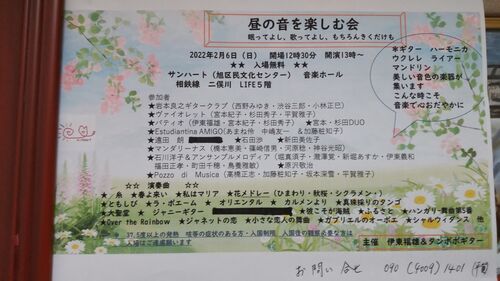 昼の音を楽しむ会
眠ってよし、歌ってよし、もちろんきくだけも
2022年2月6日（日） 開場12時30分 開演13時～
★★ 入場無料 ★★
サンハート（旭区民文化センター） 音楽ホール
相鉄線 二俣川 LIFE５階
＊ギター ハーモニカ
ウクレレ ライアー
マンドリン
美しい音色の楽器が
集います
こんな時こそ
音楽で心おだやかに
参加者
★岩本良之ギタークラブ（西野みゆき、渋谷三郎、小林正巳）
★ヴァイオレット（宮本紀子・杉田秀子、平賀雅子）
★パティオ（伊東福雄・宮本紀子・杉田秀子） ★宮本・杉田DUO
★Estudiantina AMIGO（あまね伶 中嶋友一 ＆加藤絵知子）
★遠田 朗 ★石田渉 ★新田美佐子
★マンダリーナス（橋本恵美・篠崎信男、河原稔、神谷光昭）
★石川洋子＆アンサンブルメロディア（堀真須子、瀧澤覚、新堀あすか、伊東義和
福田正孝、町田千穂、鳥養雅敏） ★原沢敬治
★Pozzo di Musica（高橋正志・加藤絵知子、坂本深雪・平賀雅子）
☆☆ 演奏曲 ☆☆
★糸 ★春よ来い ★私はマリア ★花メドレー（ひまわり・秋桜・シクラメン・）
★ともしび ★ラ・ボエーム ★オリエンタル ★カルメンより ★真珠採りのタンゴ
★大聖堂 ★ジャニーギター ★彼こそが海賊 ★ふるさと ★ハンガリー舞曲第5番
★Over the Rainbow ★ジャネットの恋 ★小さな恋人の舞曲 ★ガブリエルのオーボエ ★シャルウィダンス 他
＊ 37.5度以上の発熱 咳等の症状のある方・入国制限 入国後の観察必要な方は
入場はご遠慮願います
主催 伊東福雄＆タンポポギター
お問い合せ 090 (4009) 1401